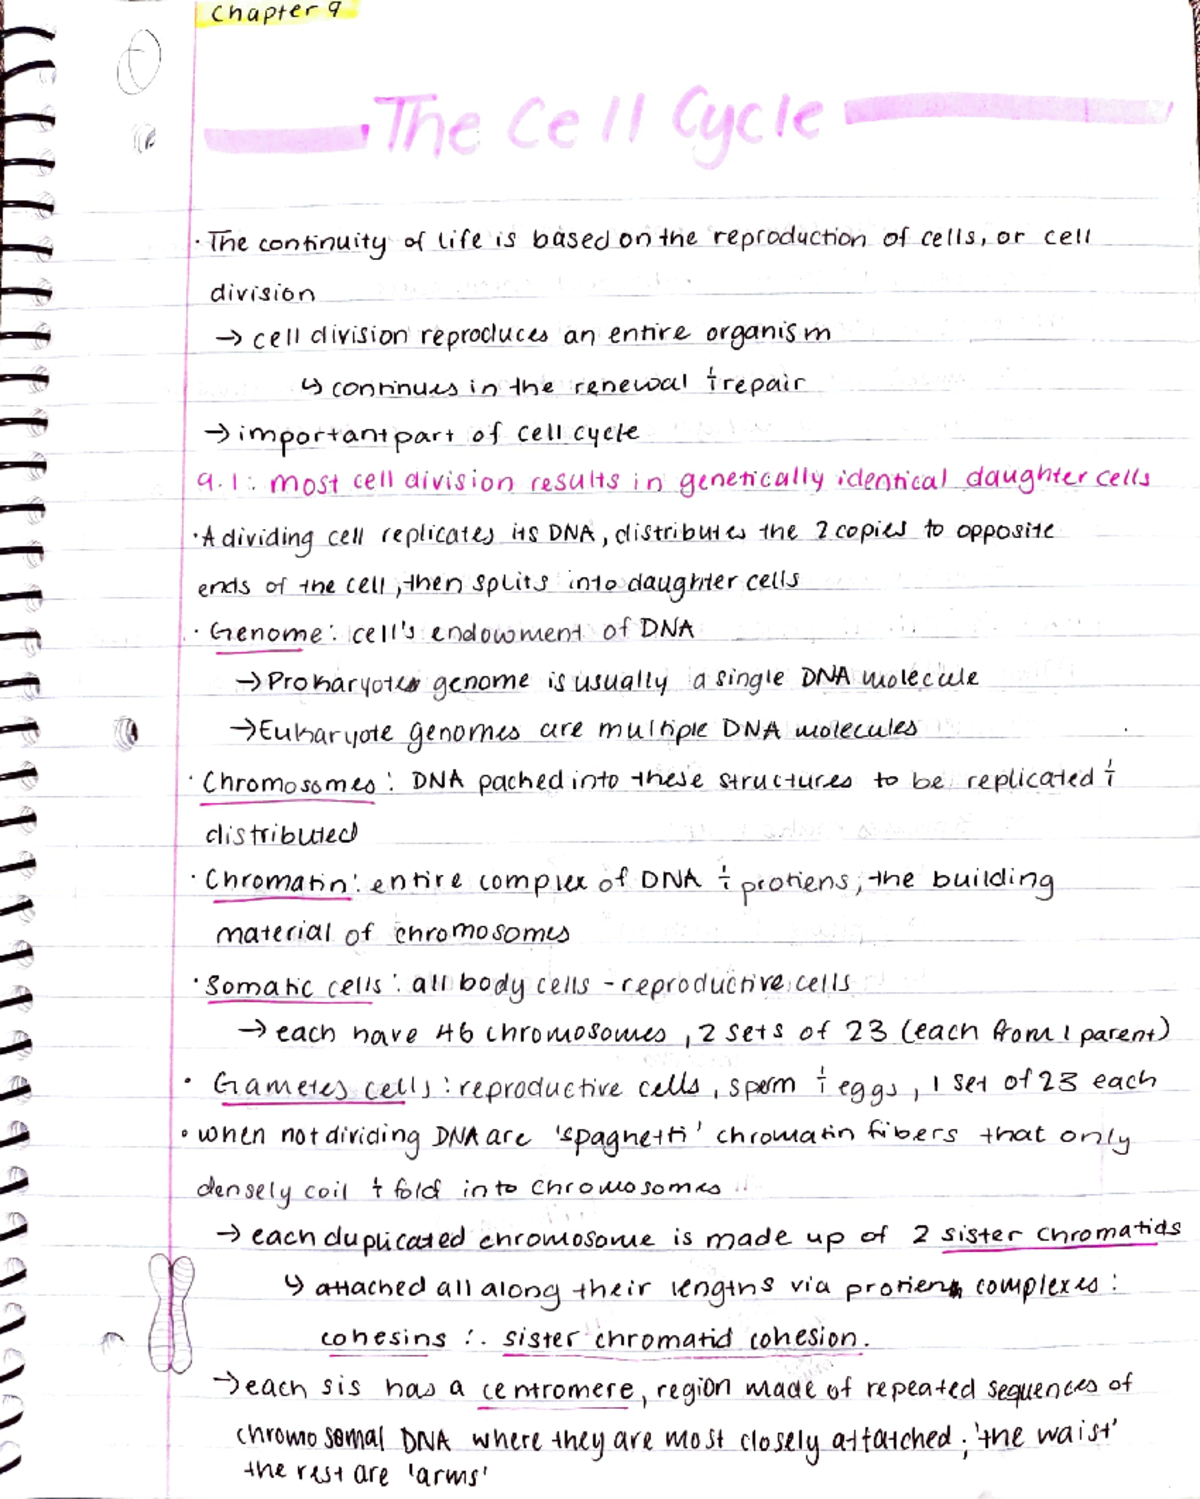 Chapter 9
The Cell Cycle
· The continuity of life is based on the reproduction of cells, or cell
division
→ cell division reproduces an entire organism
↳ continues in the renewal + repair
→ important part of cell cycle
9.1: most cell division results in genetically identical daughter cells
· A dividing cell replicates its DNA, distributes the 2 copies to opposite
ends of the cell, then splits into daughter cells
· Genome: cell's endowment of DNA
→ Prokaryote genome is usually a single DNA molecule
→ Eukaryote genomes are multiple DNA molecules
· Chromosomes: DNA packed into these structures to be replicated +
distributed
· Chromatin: entire complex of DNA + protiens, the building
material of chromosomes
· Somatic cells: all body cells - reproductive cells
→ each have 46 chromosomes, 2 sets of 23 (each from 1 parent)
· Gametes cells: reproductive cells, sperm + eggs, 1 set of 23 each
• when not dividing DNA are 'spaghetti' chromatin fibers that only
densely coil + fold into chromosomes
→ each duplicated chromosome is made up of 2 sister chromatids
↳ attached all along their lengths via protien complexes:
cohesins ∴ sister chromatid cohesion.
→ each sis has a centromere, region made of repeated sequences of
chromosomal DNA where they are most closely attatched; 'the waist'
the rest are 'arms'